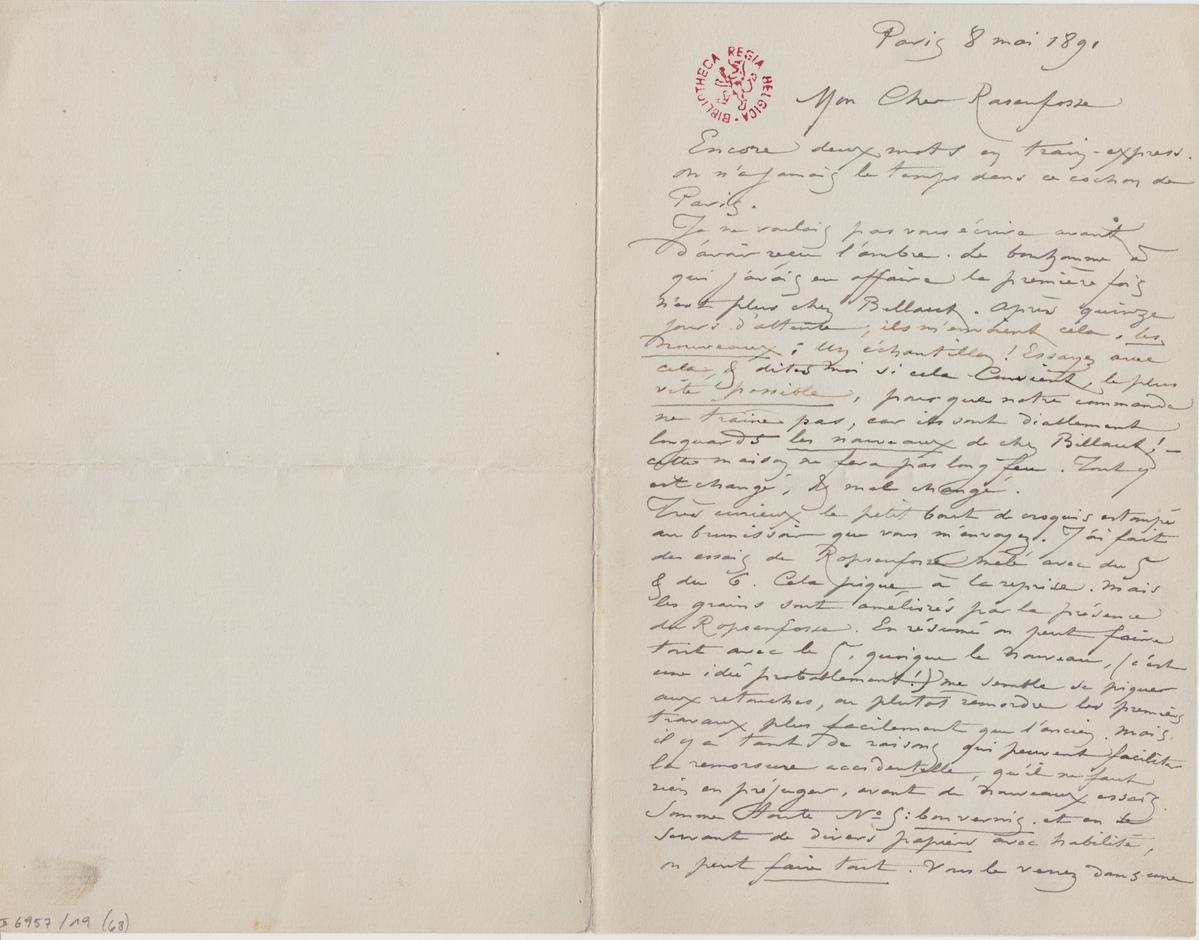 Paris 8 mai 1891
BIBLIOTHECA REGIA BELGICA
Mon Cher Rassenfosse
Encore deux mots en train-express.
on n'a jamais le temps dans ce cochon de
Paris.
Je ne voulais pas vous écrire avant
d'avoir reçu l'ambre. Le bonhomme à
qui j'avais eu affaire la première fois
n'est plus chez Billault. Après quinze
jours d'attente, ils m'envoient cela, les
nouveaux ; Un échantillon ! Essayez avec
cela, & dites moi si cela Convient, le plus
vite possible, pour que notre commande
ne traine pas, car ils sont diablement
longuards les nouveaux de chez Billault ! –
cette maison ne fera pas long feu. Tout y
est changé, & mal changé.
Très curieux le petit bout de croquis estompé
au brunissoir que vous m'envoyez. J'ai fait
des essais de Ropsenfosse mêlé avec du 5
& du 6. Cela pique à la reprise. Mais
les grains sont améliorés par la présence
du Ropsenfosse. En résumé on peut faire
tout avec le 5, quoique le nouveau, (c'est
une idée probablement !) me semble se piquer
aux retouches, ou plutot remordre les premiers
travaux plus facilement que l'ancien. Mais
il y a tant de raisons qui peuvent faciliter
la remorsure accidentelle, qu'il ne faut
rien en préjuger, avant de nouveaux essais.
Somme toute No 5 : bon vernis. et en se
servant de divers papiers avec habilité,
on peut faire tout. Vous le verrez dans une
II 6957 / 19 (63)